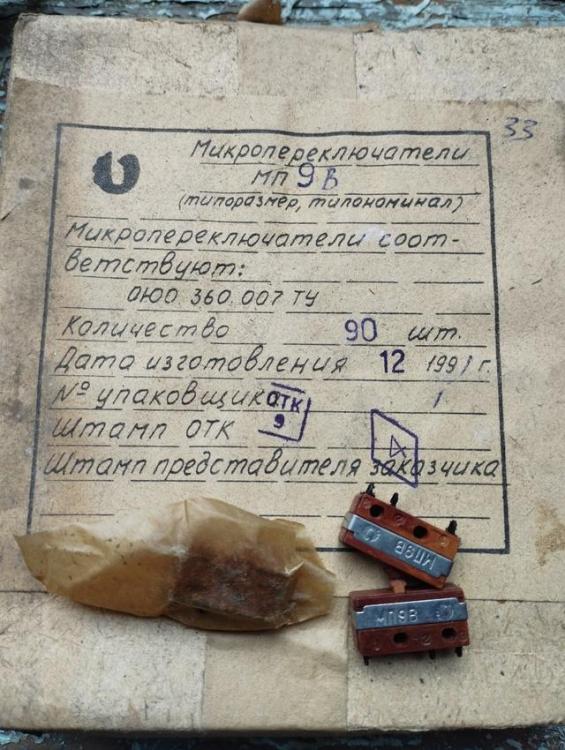 33
Микропереключатели
МП 9В
(типоразмер, типономинал)
Микропереключатели соот-
ветствуют:
ОЮО 360 007 ТУ
Количество 90 шт.
Дата изготовления 12 1991 г.
№ упаковщика 1
ОТК
9
Штамп ОТК
Штамп представителя заказчика
МП9В
МП9В